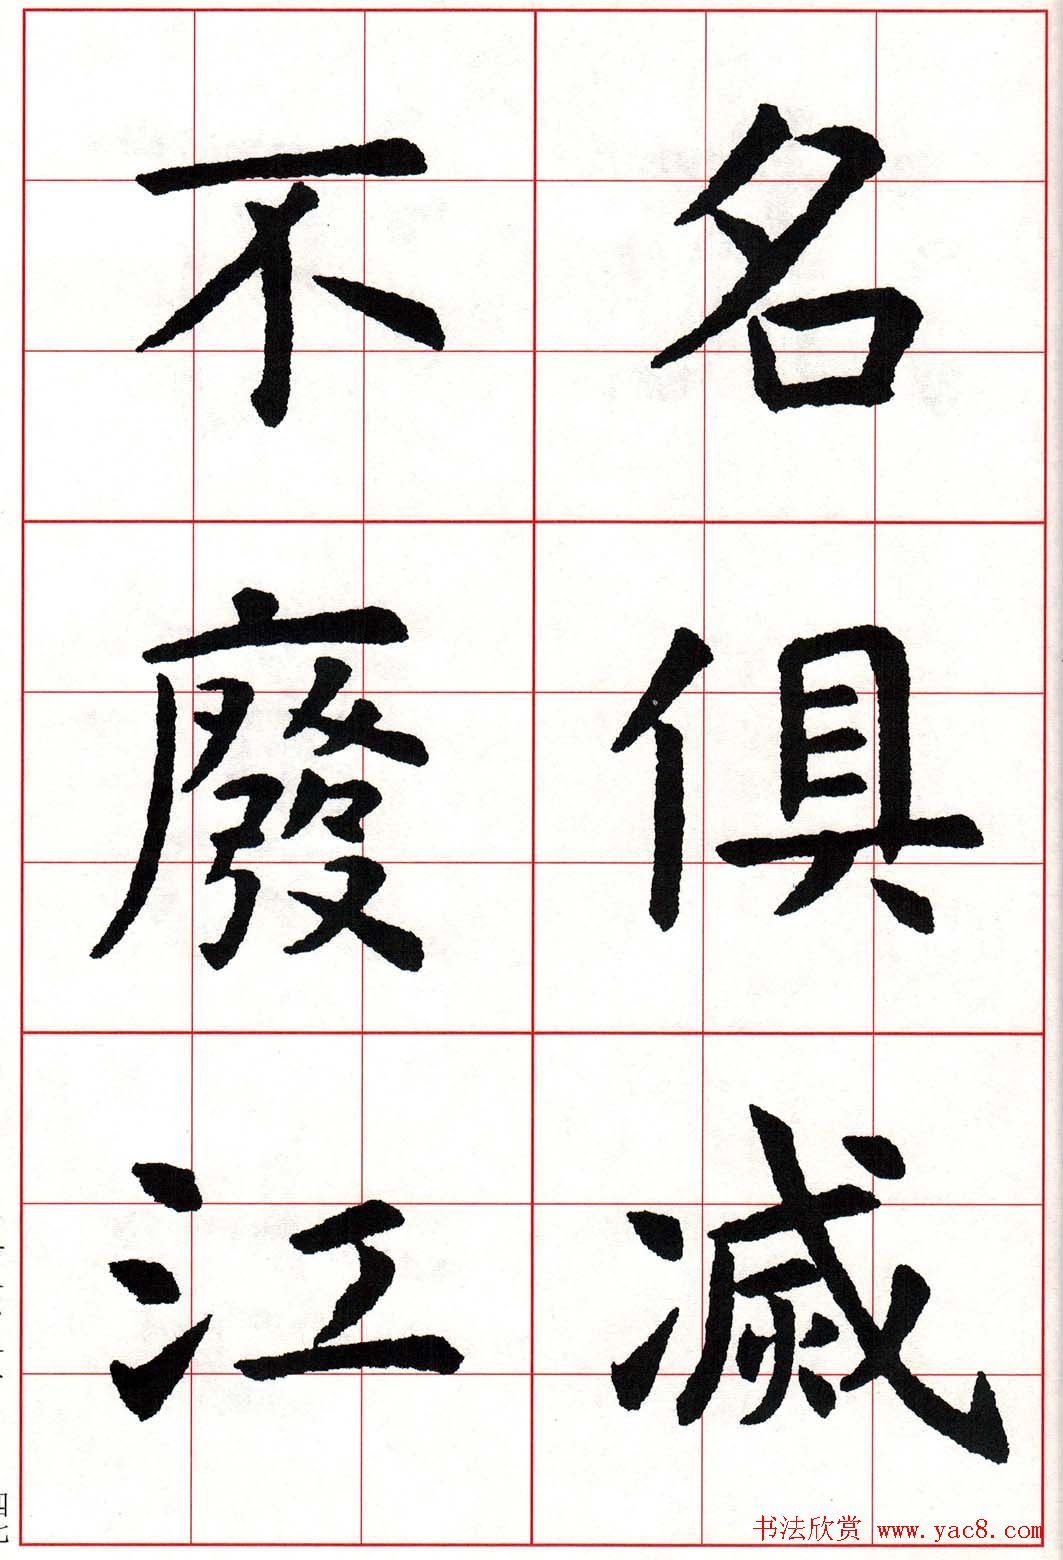 名俱滅
不廢江
书法欣赏 www.yac8.com